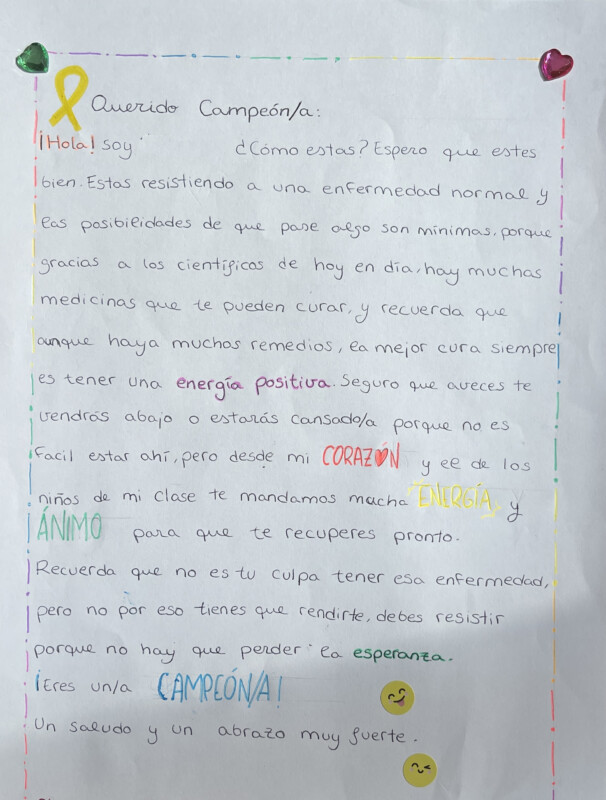 Querido Campeón/a:
¡Hola! soy ¿Cómo estas? Espero que estes
bien. Estas resistiendo a una enfermedad normal y
las posibilidades de que pase algo son minimas, porque
gracias a los científicos de hoy en día, hay muchas
medicinas que te pueden curar, y recuerda que
aunque haya muchos remedios, la mejor cura siempre
es tener una energía positiva. Seguro que aveces te
vendrás abajo o estarás cansado/a porque no es
facil estar ahí, pero desde mi CORAZÓN y el de los
niños de mi clase te mandamos mucha ENERGÍA y
ÁNIMO para que te recuperes pronto.
Recuerda que no es tu culpa tener esa enfermedad,
pero no por eso tienes que rendirte, debes resistir
porque no hay que perder la esperanza.
¡Eres un/a CAMPEÓN/A!
Un saludo y un abrazo muy fuerte.